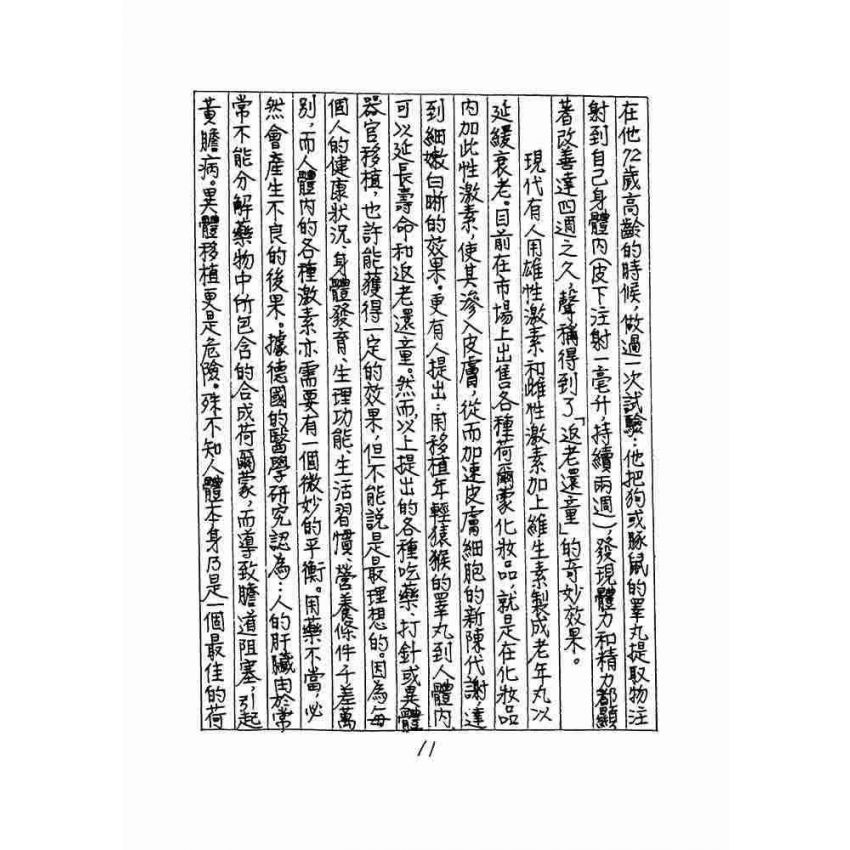 在他72歲高齡的時候，做過一次試驗：他把狗或豚鼠的睪丸提取物注
射到自己身體內（皮下注射一毫升，持續兩週），發現體力和精力都顯
著改善達四週之久，聲稱得到了「返老還童」的奇妙效果。
現代有人用雄性激素和雌性激素加上維生素製成老年丸以
延緩衰老。目前在市場上出售各種荷爾蒙化妝品，就是在化妝品
內加此性激素，使其滲入皮膚，從而加速皮膚細胞的新陳代謝，達
到細嫩白晰的效果。更有人提出：用移植年輕猿猴的睪丸到人體內，
可以延長壽命和返老還童。然而，以上提出的各種吃藥、打針或異體
器官移植，也許能獲得一定的效果，但不能説是最理想的。因為每
個人的健康狀況、身體發育、生理功能、生活習慣、營養條件千差萬
別，而人體內的各種激素亦需要有一個微妙的平衡。用藥不當，必
然會產生不良的後果。據德國的醫學研究認為：人的肝臟由於常
常不能分解藥物中所包含的合成荷爾蒙，而導致膽道阻塞，引起
黃膽病。異體移植更是危險。殊不知，人體本身乃是一個最佳的荷
11